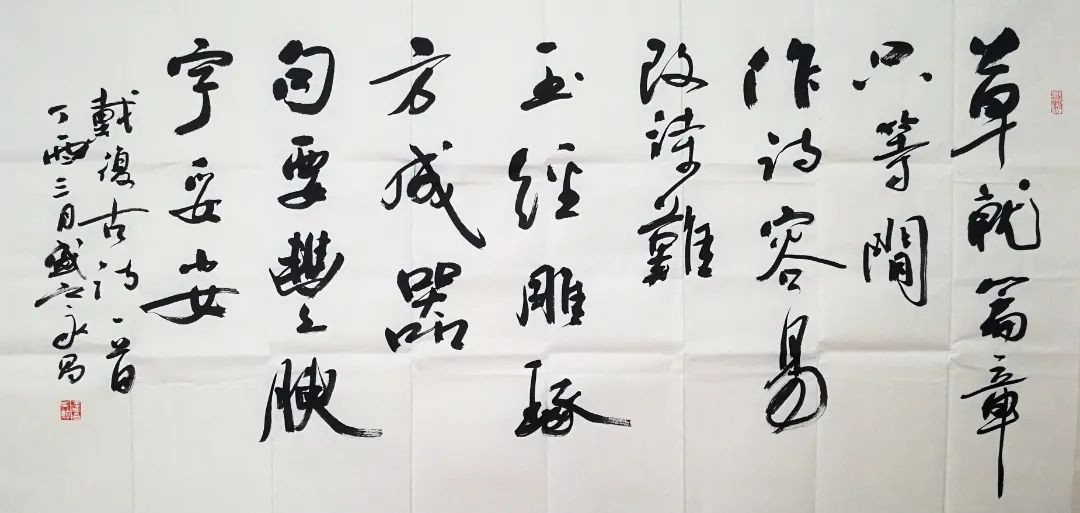 草就篇章
只等閒
作詩容易
改詩難
玉經雕琢
方成器
句要豐腴
字妥安
戴復古詩一首
丁酉三月